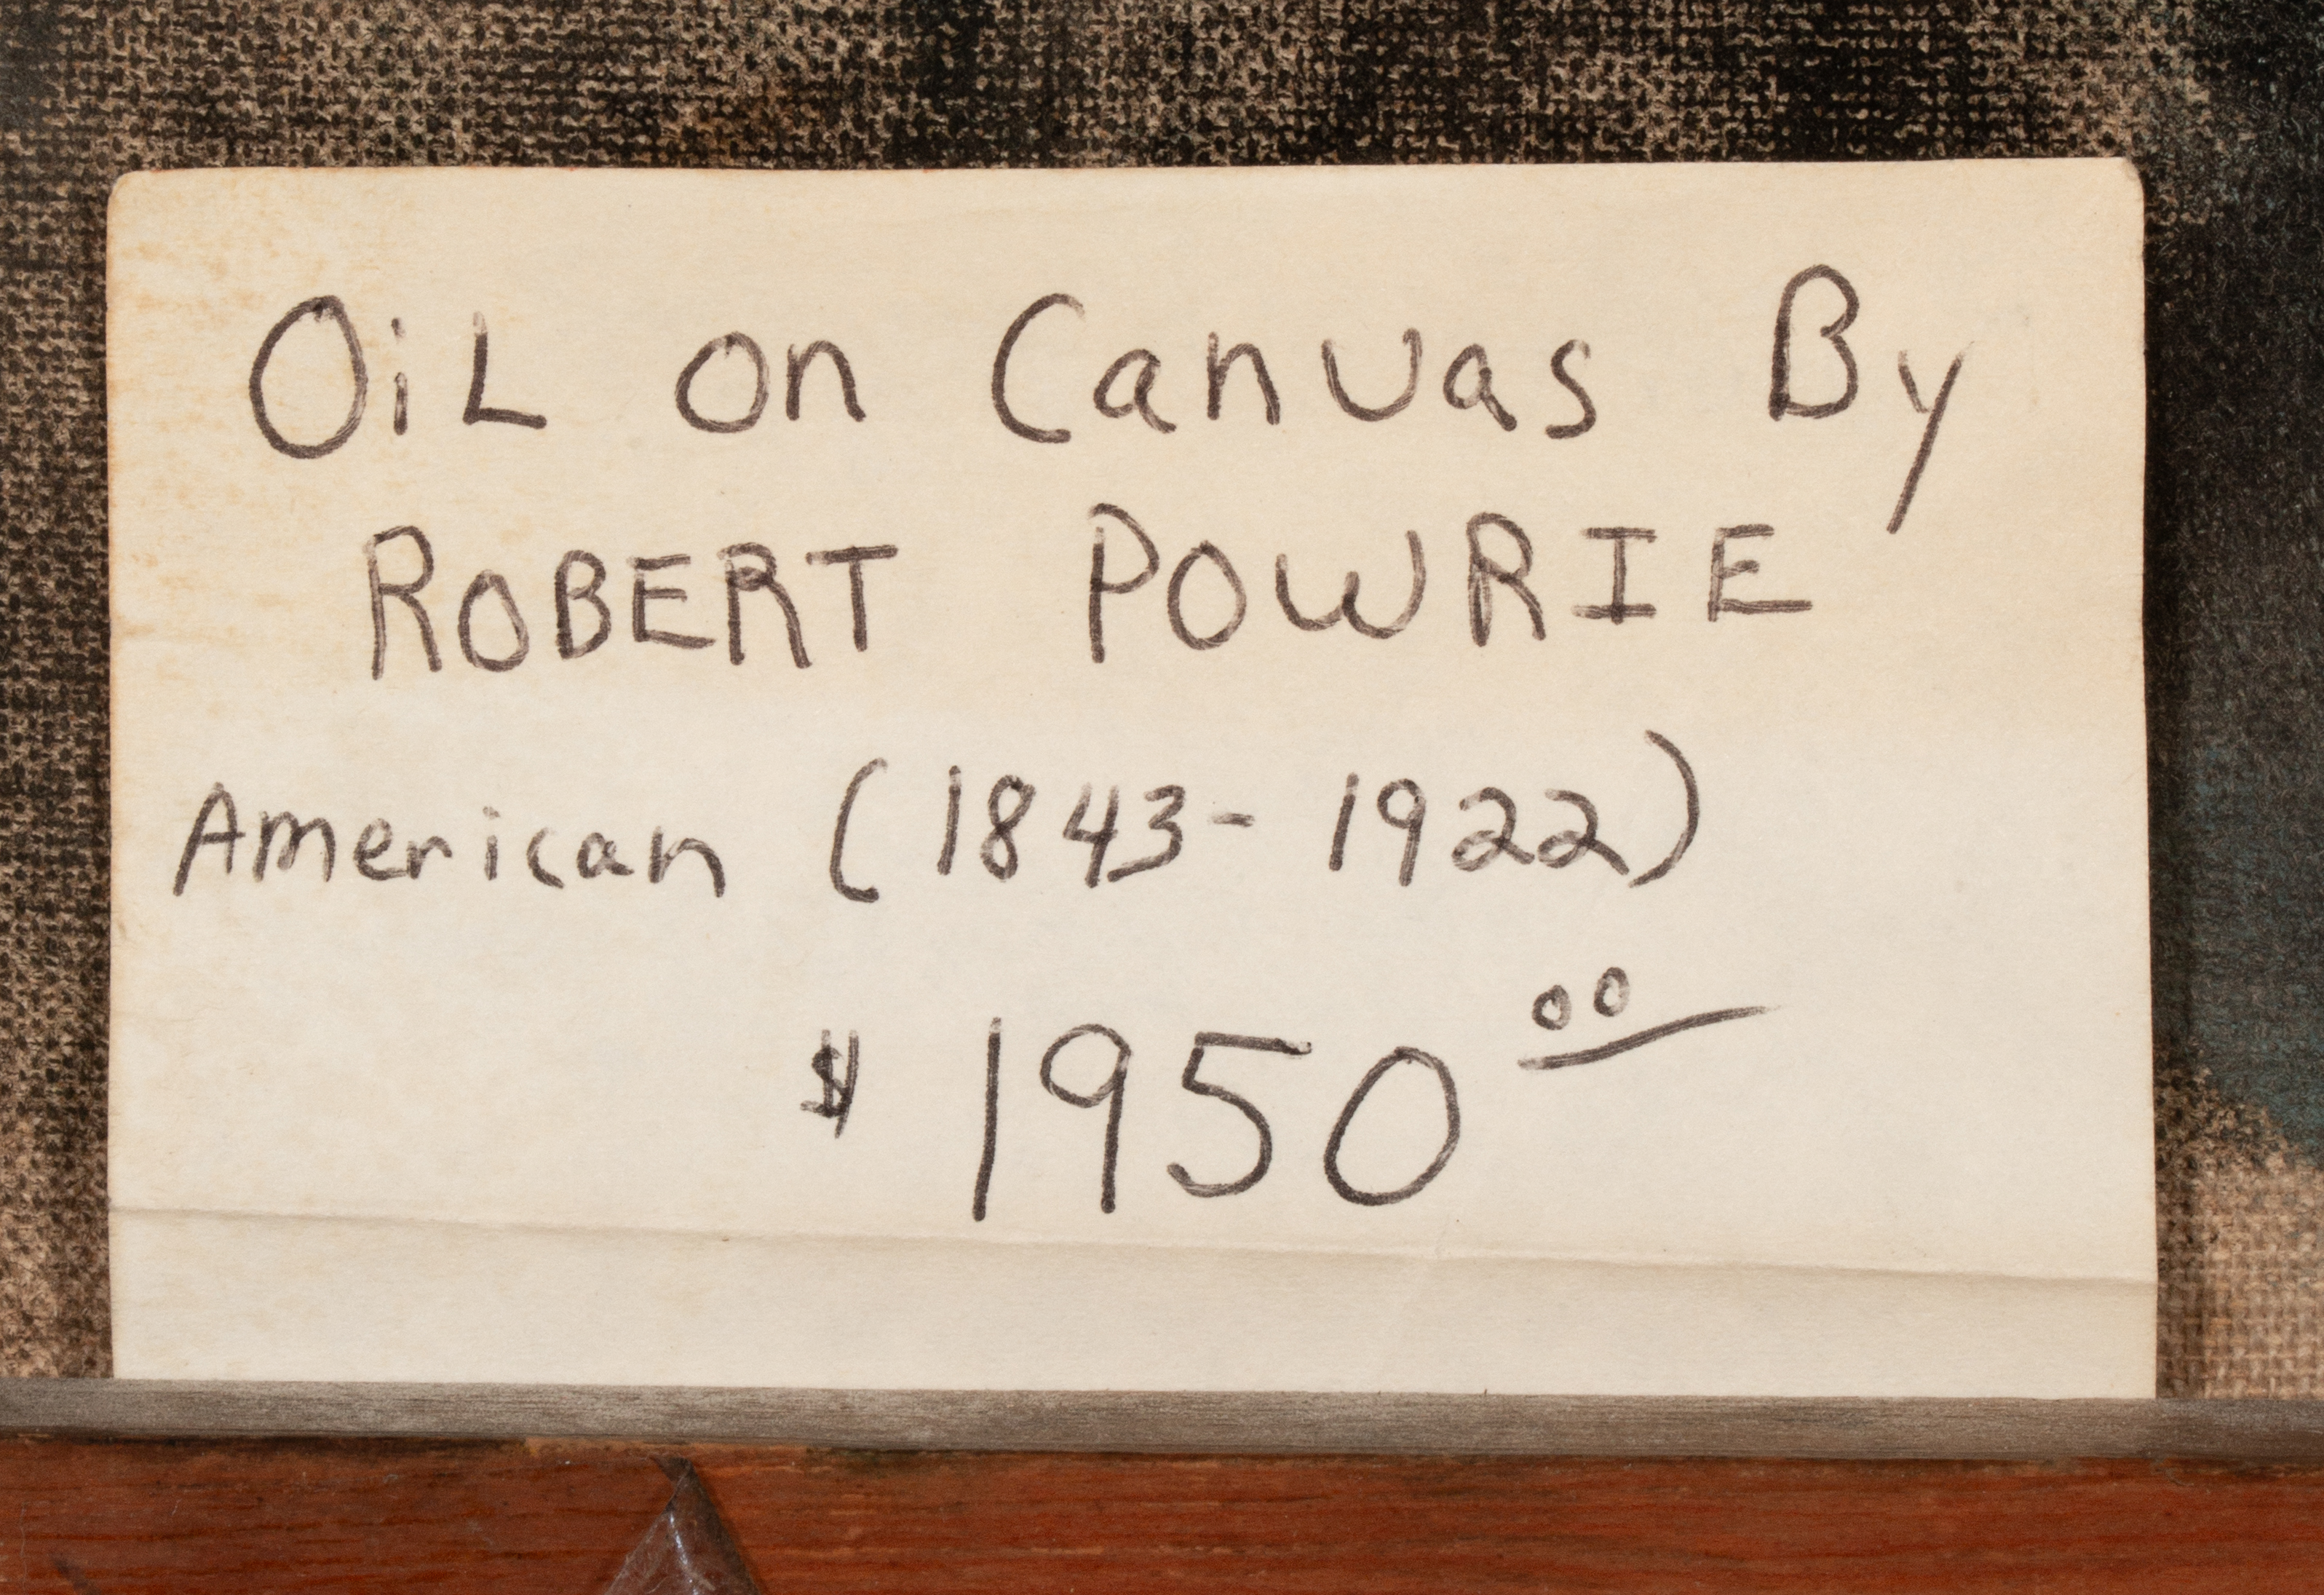 OiL on Canvas By
ROBERT POWRIE
American (1843-1922)
$ 1950 00